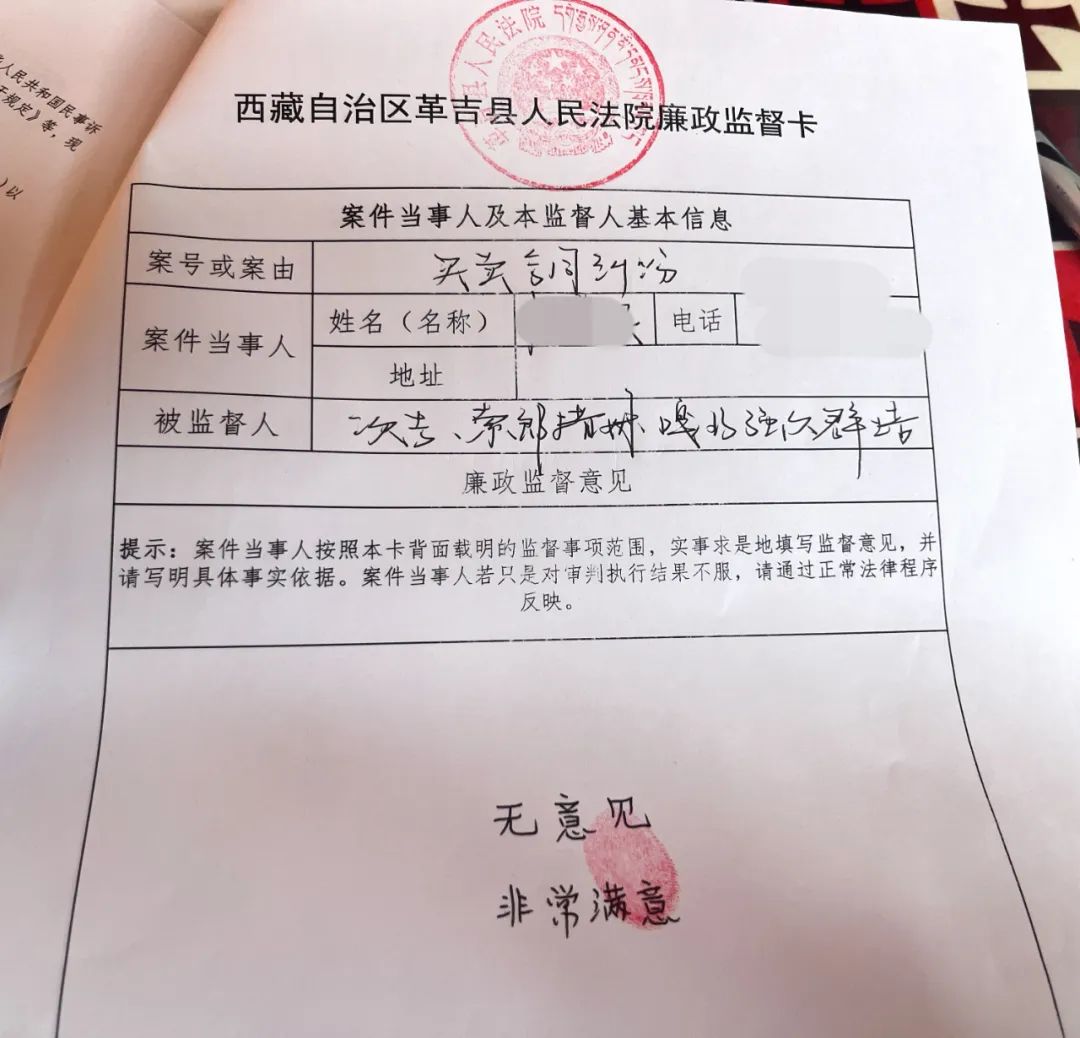 人民共和国民事诉
于规定》等，现
）以
革吉县人民法院
西藏自治区革吉县人民法院廉政监督卡
案件当事人及本监督人基本信息
案号或案由 买卖合同纠纷
案件当事人 姓名（名称） 电话
地址
被监督人 次吉、索郎措姆、嘎玛强久群培
廉政监督意见
提示：案件当事人按照本卡背面载明的监督事项范围，实事求是地填写监督意见，并
请写明具体事实依据。案件当事人若只是对审判执行结果不服，请通过正常法律程序
反映。
无意见
非常满意